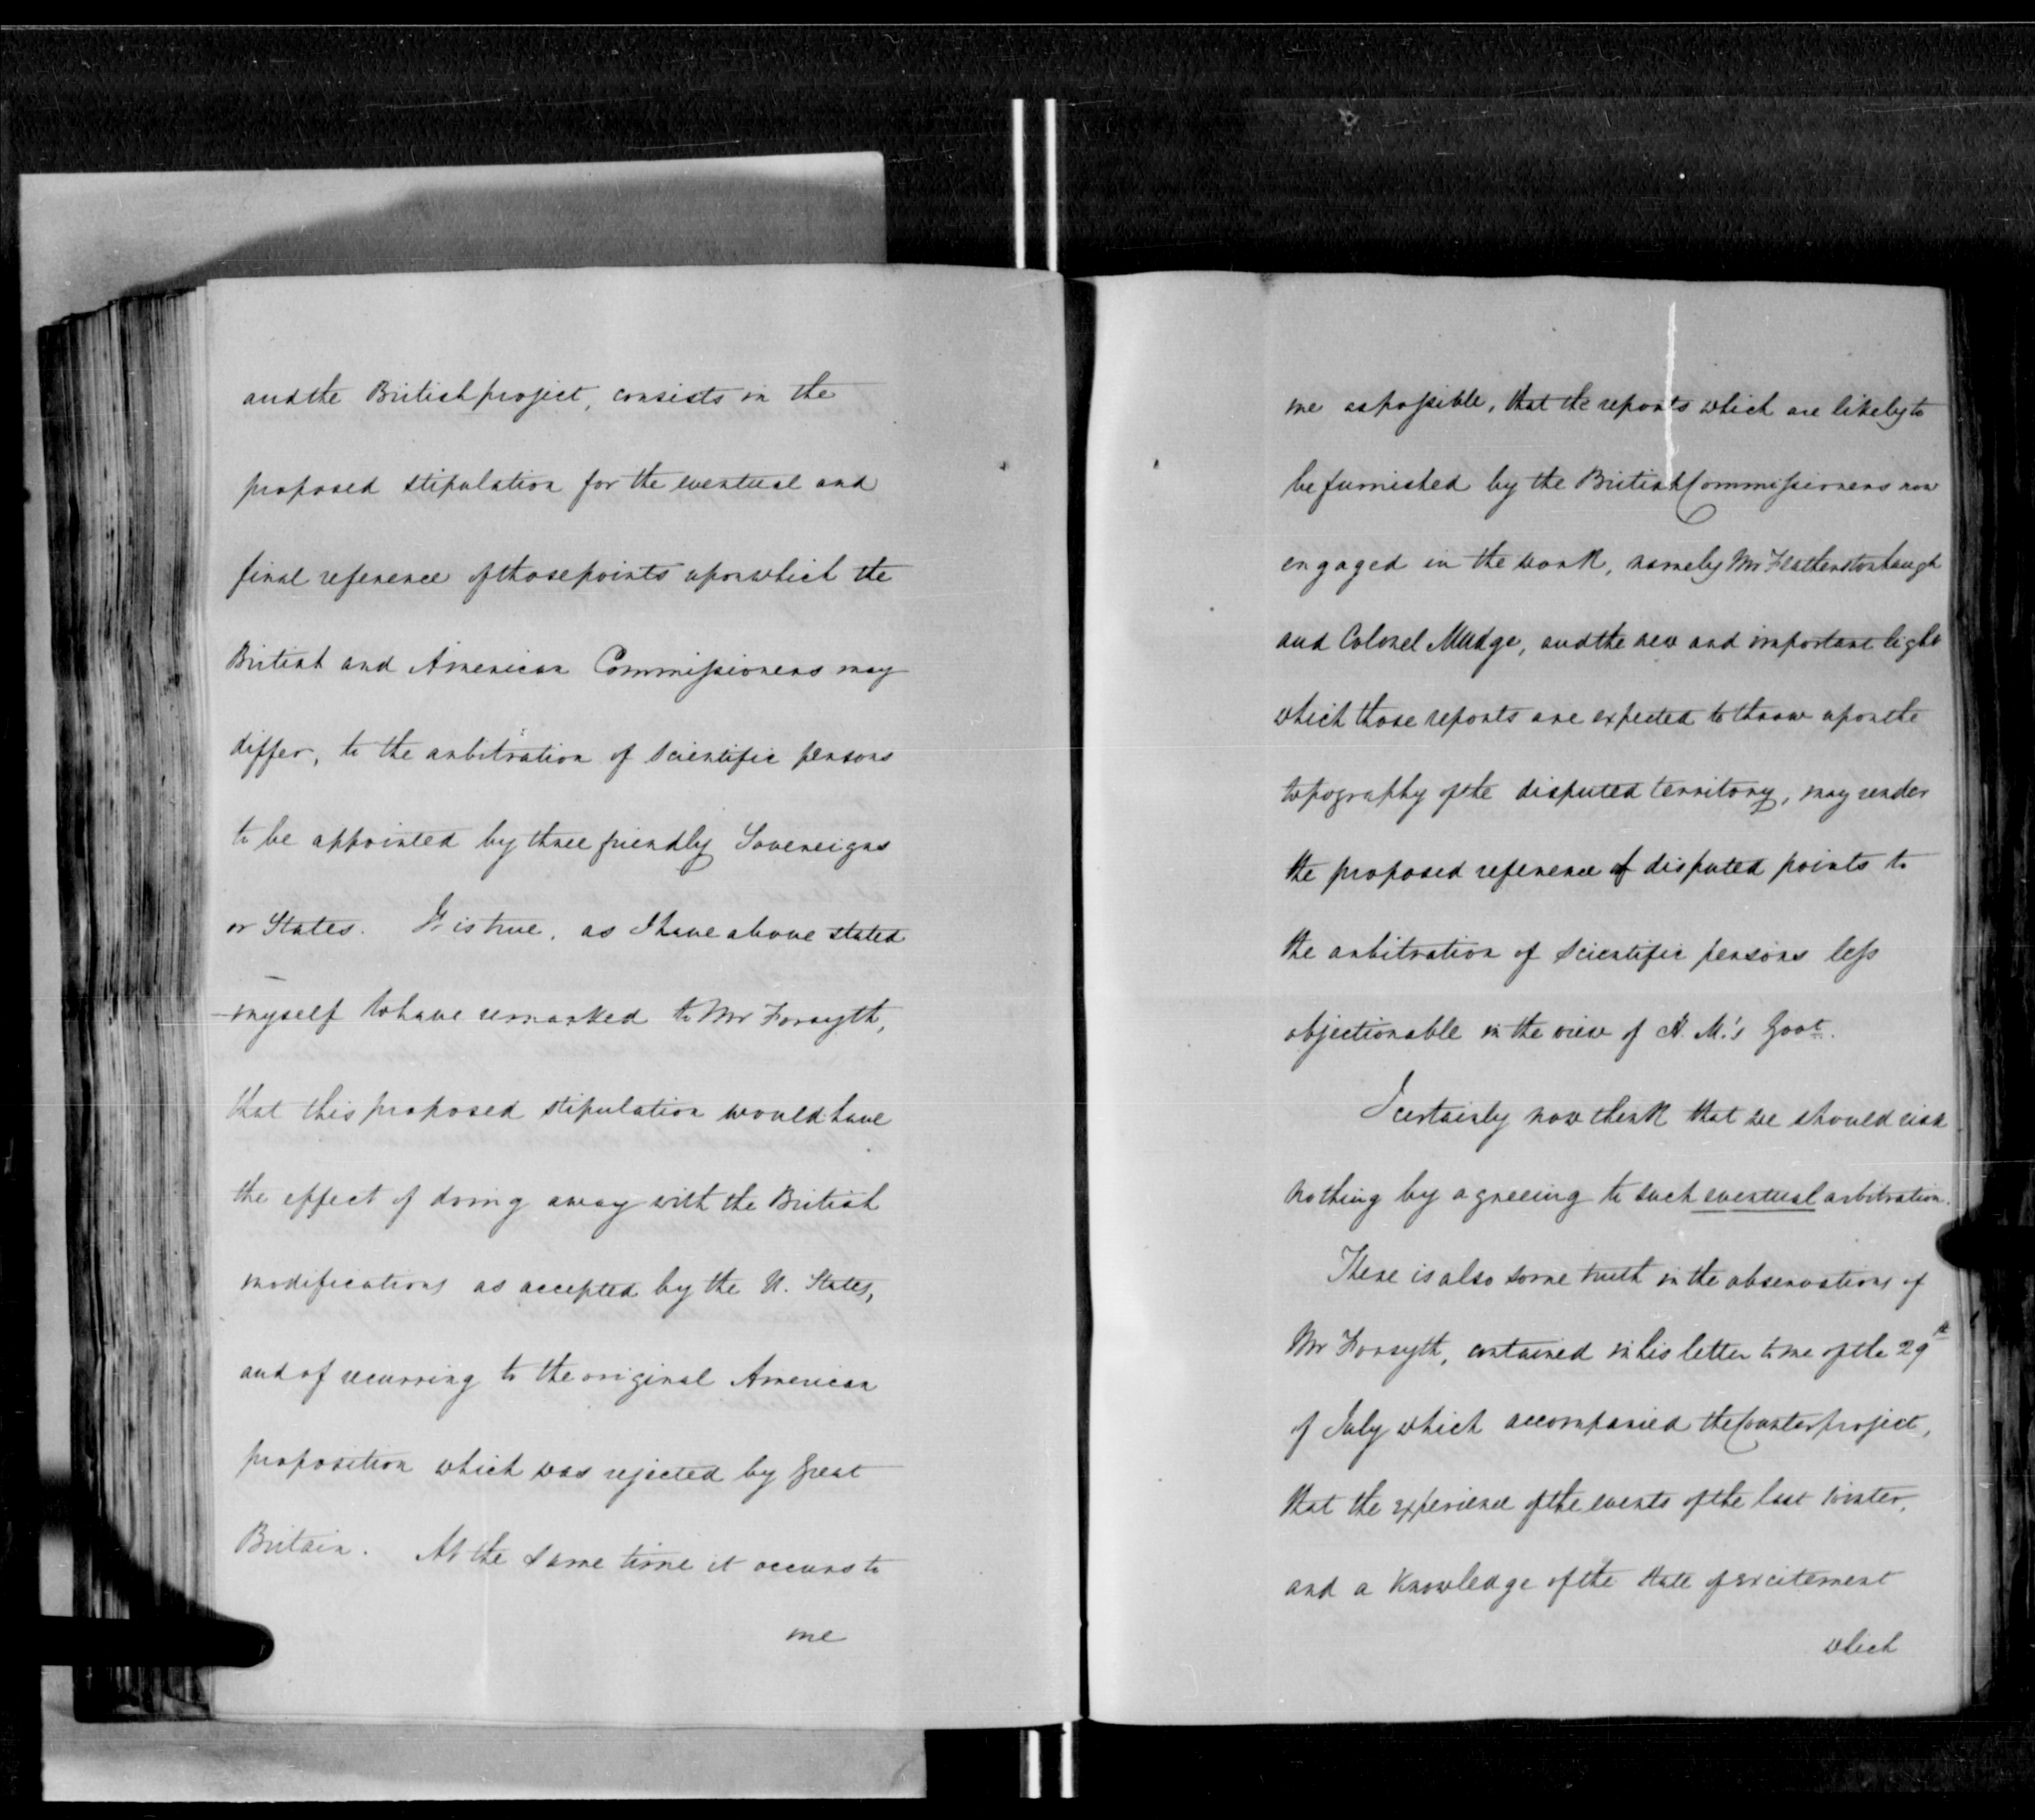 and the British project, consists in the
proposed stipulation for the eventual and
final reference of those points upon which the
British and American Commissioners may
differ, to the arbitration of Scientific persons
to be appointed by three friendly Sovereigns
or States. It is true, as I have above stated
myself to have remarked to Mr Forsyth,
that this proposed stipulation would have
the effect of doing away with the British
modifications as accepted by the U. States,
and of recurring to the original American
proposition which was rejected by Great
Britain. At the same time it occurs to
me
me as possible, that the reports which are likely to
be furnished by the British Commissioners now
engaged in the work, namely Mr Featherstonhaugh
and Colonel Mudge, and the new and important light
which those reports are expected to throw upon the
topography of the disputed territory, may render
the proposed reference of disputed points to
the arbitration of Scientific persons less
objectionable in the view of H. M.'s Govt.
I certainly now think that we should risk
nothing by agreeing to such eventual arbitration.
There is also some truth in the observations of
Mr Forsyth, contained in his letter to me of the 29th
of July which accompanied the Counterproject,
that the experience of the events of the last winter,
and a Knowledge of the state of excitement
which